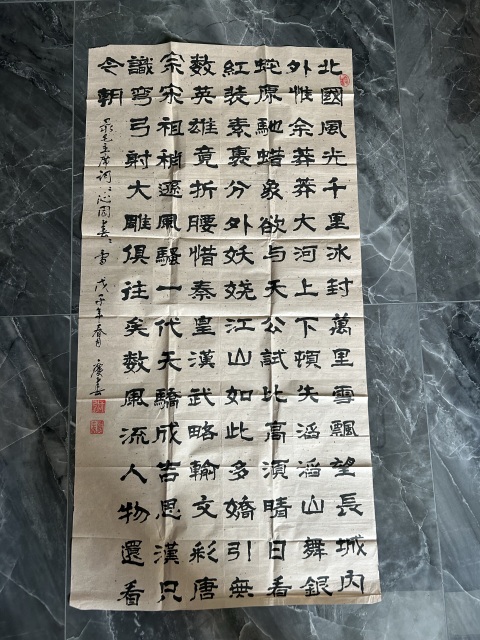 北國風光千里冰封萬里雪飄望長城內
外惟余莽莽大河上下頓失滔滔山舞銀
蛇原馳蜡象欲与天公試比高須晴日看
紅裝素裹分外妖娆江山如此多嬌引無
數英雄竟折腰惜秦皇漢武略輸文彩唐
宗宋祖稍遜風騷一代天驕成吉思漢只
識彎弓射大雕俱往矣數風流人物還看
今朝
录毛主席词沁园春雪戊子年春月